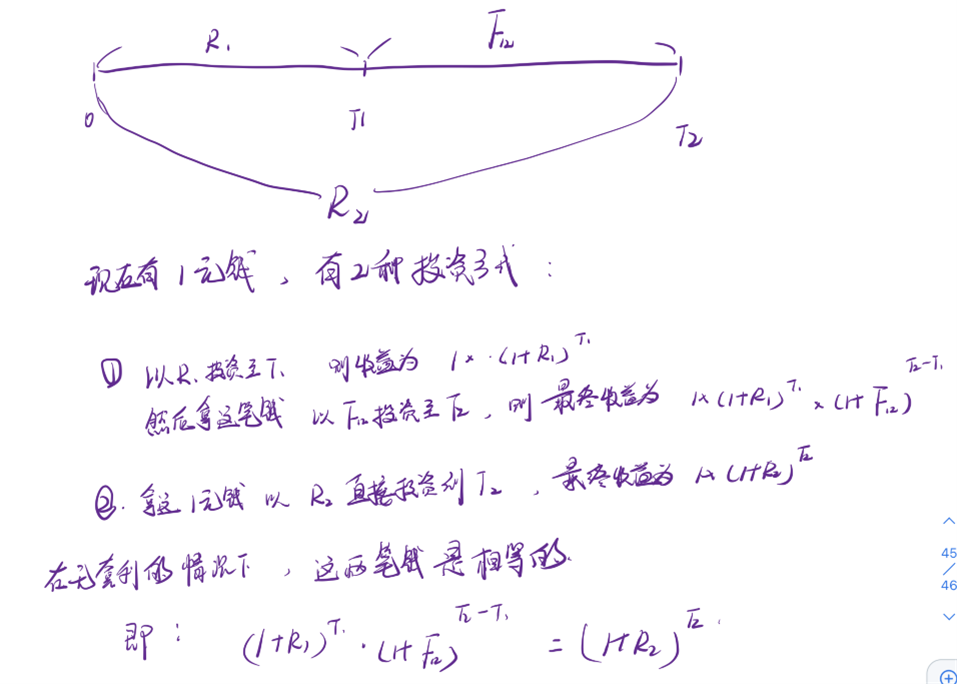 R₁ F₁₂
0 T1 T2
R₂
现在有1元钱，有2种投资方式：
① 以R₁投资至T₁ 则收益为 1×·(1+R₁)^T₁
然后拿这笔钱 以F₁₂投资至T₂，则最终收益为 1×(1+R₁)^T₁×(1+F₁₂)^T₂-T₁
②. 拿这1元钱 以 R₂ 直接投资到T₂，最终收益为 1×(1+R₂)^T₂
在无套利的情况下，这两笔钱是相等的.
即： (1+R₁)^T₁·(1+F₁₂)^T₂-T₁ = (1+R₂)^T₂.
45
/
46